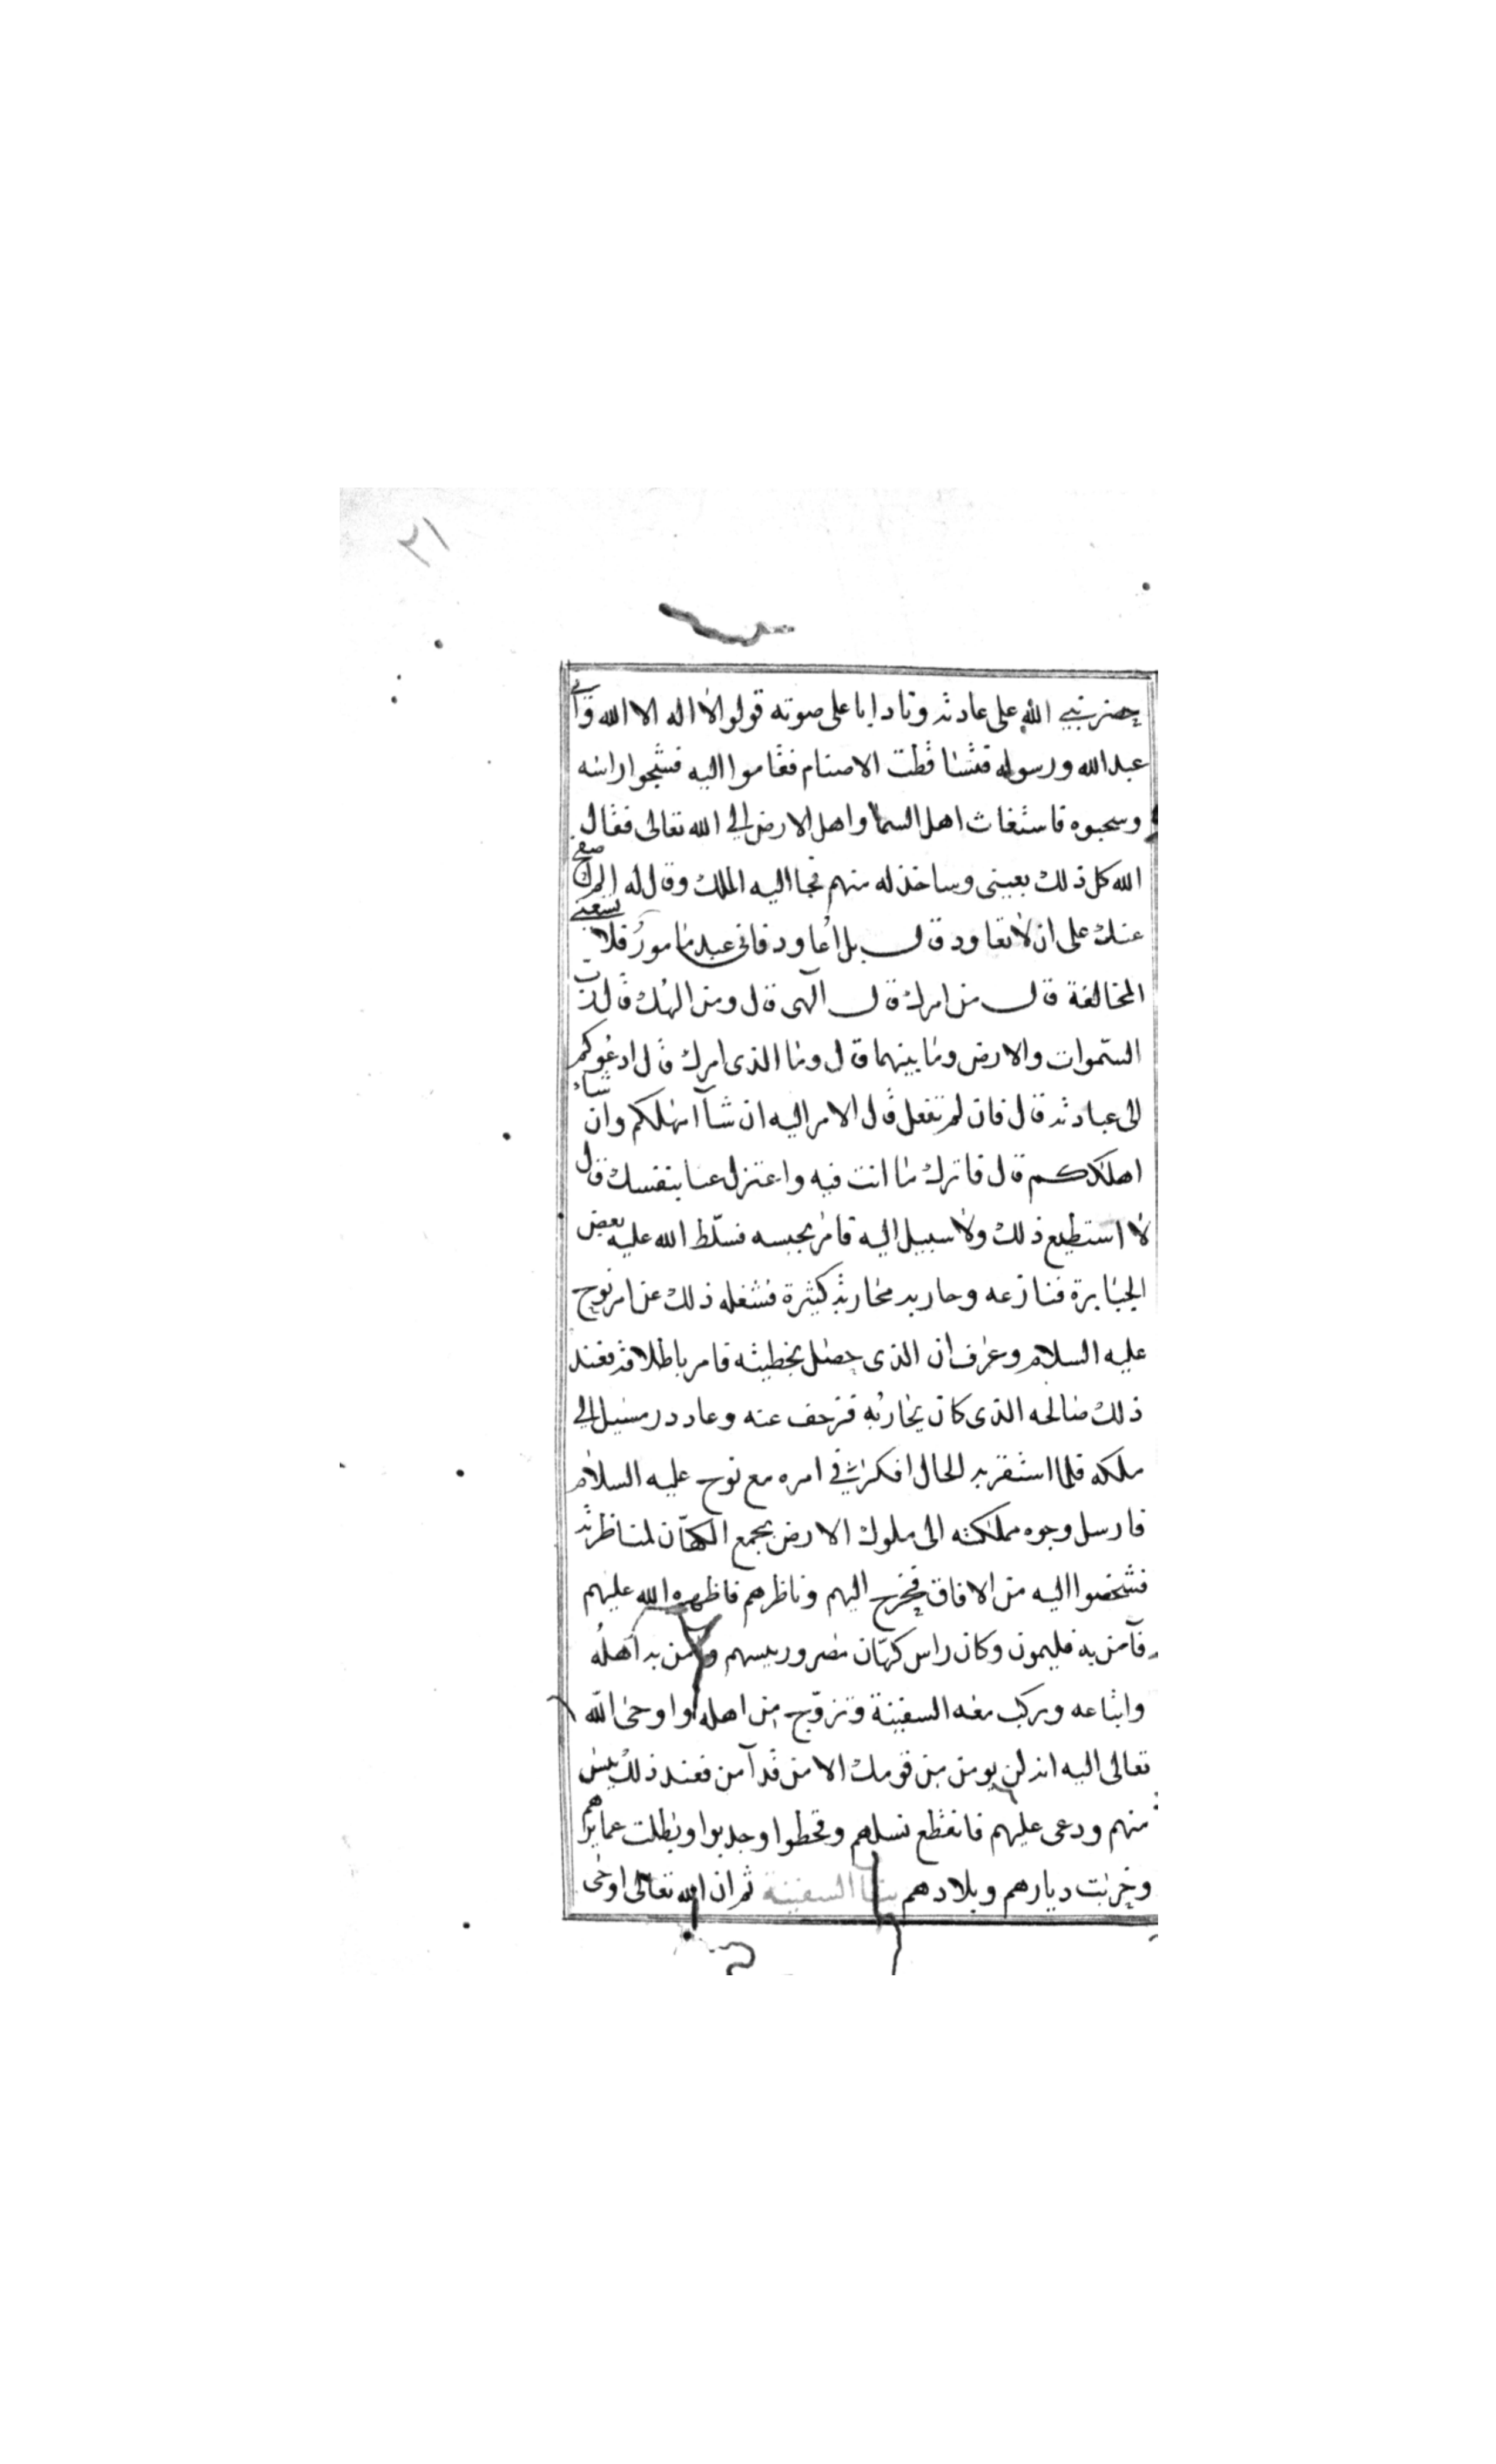 ٢١
حضر نبي الله على عادته ونادا باعلى صوته قولوا لا اله الا الله واني
عبد الله ورسوله فتساقطت الاصنام فقاموا اليه فشجوا راسه
وسحبوه فاستغاث اهل السما واهل الارض الى الله تعالى فقال
الله كل ذلك بعيني وساخذ له منهم فجا اليه الملك وقال له الم اصفح
عنك على ان لا تعاود قال بل اعاود فاني عبد مامور فلا تسعني
المخالفة قال من امرك قال الهي قال ومن الهك قال رب
السموات والارض وما بينهما قال وما الذي امرك قال ادعوكم
الى عبادته قال فان لم تفعل قال الامر اليه ان شآ امهلكم وان شاء
اهلككم قال فاترك ما انت فيه واعتزل عنا بنفسك قال
لا استطيع ذلك ولا سبيل اليه فامر بحبسه فسلّط الله عليه بعض
الجبابرة فنازعه وحاربه محاربة كثيرة فشغله ذلك عن امر نوح
عليه السلام وعرف ان الذي حصل بخطيته فامر باطلاقه فعند
ذلك صالحه الذي كان يحاربه فزحف عنه وعاد درمسيل الى
ملكه فلما استقر به الحال افكر في امره مع نوح عليه السلام
فارسل وجوه مملكته الى ملوك الارض بجمع الكهّان لمناظرته
فشخصوا اليه من الافاق فخرج اليهم وناظرهم فاظهره الله عليهم
فآمن به فليمون وكان راس كهّان مصر ورييسهم وآمن به اهله
واتباعه وركب معه السفينة وتزوّج من اهله واوحى الله
تعالى اليه انه لن يومن من قومك الا من قد آمن فعند ذلك يئس
منهم ودعى عليهم فانقطع نسلهم وقحطوا وجدبوا وبطلت عمايرهم
وخربت ديارهم وبلادهم بنا السفينة ثم ان الله تعالى اوحى